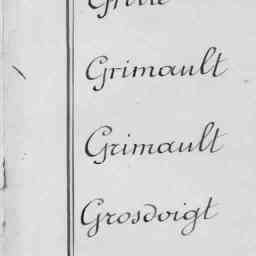 Grimault
Grimault
Grosdoigt